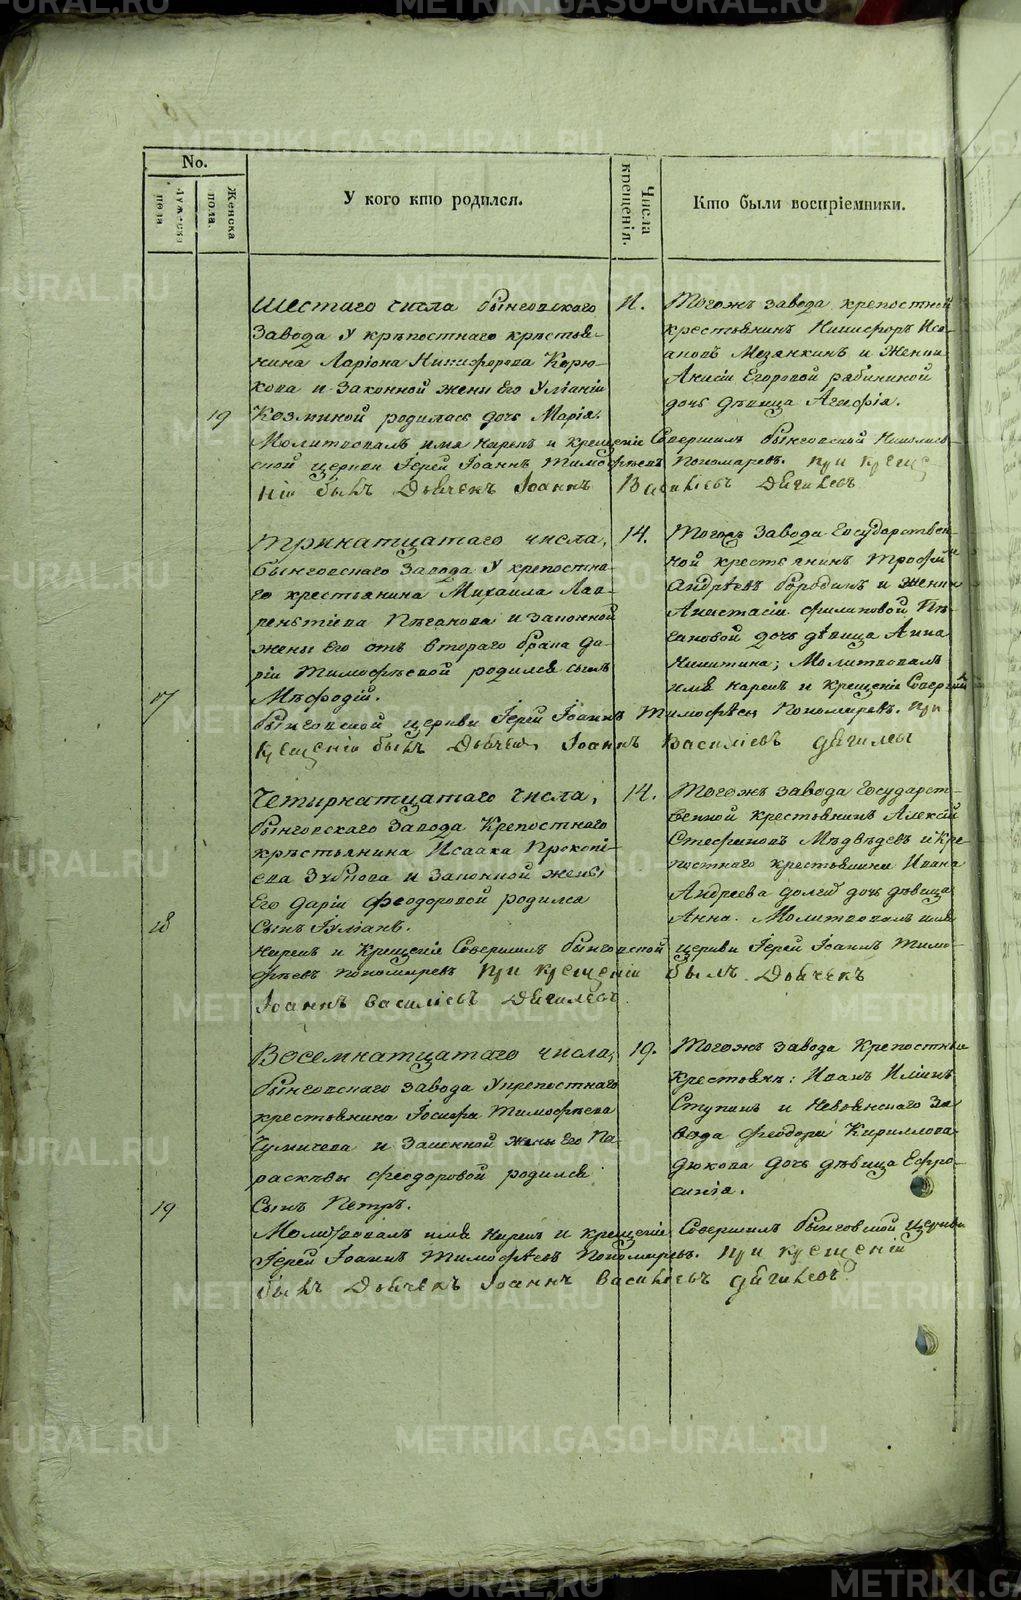 METRIKI.GASO-URAL.RU
No.
Мужеска пола
Женска пола.
У кого кто родился.
Числа крещенія.
Кто были воспріемники.
19
Шестаго числа бынговского
завода у крѣпостнаго крѣстья-
нина Ларіона Никифорова Корю-
кова и законной жены его Уліаніи
Козминой родилась дочь Марія.
11.
Тогожъ завода крепостной
крестьянинъ Никифоръ Иса-
аковъ Мезянкинъ и жении
Анисіи Егоровой рябининой
дочь дѣвица Агафія.
Молитвовалъ имя нарекъ и крещеніе Совершилъ бынговской Николаев-
ской церкви Іерей Іоаннъ Тимофѣевъ Пономаревъ. при креще-
ніи былъ Дьячекъ Іоаннъ Василіевъ Дягилевъ
17
Тринатцатаго числа,
бынговскаго завода у крепостна-
го крестьянина Михаила Лав-
рентіева Пѣганова и законной
жены его отъ втораго брака Да-
ріи Тимофѣевой родился сынъ
Мѣфодій.
14.
Тогожъ завода Государствен-
ной крестьянинъ Трофимъ
Андрѣевъ бородинъ и жении
Анастасіи филиповой Пѣ-
гановой дочь дѣвица Анна
Никитина; Молитвовалъ
имя нарекъ и крещеніе Совершилъ
бынговской церкви Іерей Іоаннъ Тимофѣевъ Пономаревъ. При
крещеніи былъ Дьячекъ Іоаннъ Василіевъ Дягилевъ
18
Четырнатцатаго числа,
бынговскаго завода Крепостнаго
крѣстьянина Исаака Прокопі-
ева Зубкова и законной жены
Его Даріи Феодоровой родился
Сынъ Іуліанъ.
14.
Тогожъ завода государст-
венной крестьянинъ Алексій
Стефановъ Мѣдвѣдевъ и Кре-
постнаго крестьянина Ивана
Андреева дочь дѣвица
Анна. Молитвовалъ имя
нарекъ и Крещеніе Совершилъ бынговской церкви Іерей Іоаннъ Тимо-
фѣевъ пономаревъ при крещеніи былъ Дьячекъ
Іоаннъ василіевъ Дягилевъ
19
Восемнатцатаго числа,
бынговскаго завода Укрепостнаго
крестьянина Іосифа Тимофѣева
Чумичева и законной жены Его Па-
раскевы Феодоровой родился
Сынъ Петръ.
19.
Тогожъ завода Крепостныи
крестьян: Иванъ Иліинъ
Ступинъ и Невьянскаго За-
вода Феодора Кириллова
Дюкова дочь дѣвица Ефро-
синія.
Молитвовалъ имя нарекъ и крещеніе Совершилъ бынговской церкви
Іерей Іоаннъ Тимофѣевъ Пономаревъ. при крещеніи
былъ Дьячекъ Іоаннъ Василіевъ дягилевъ